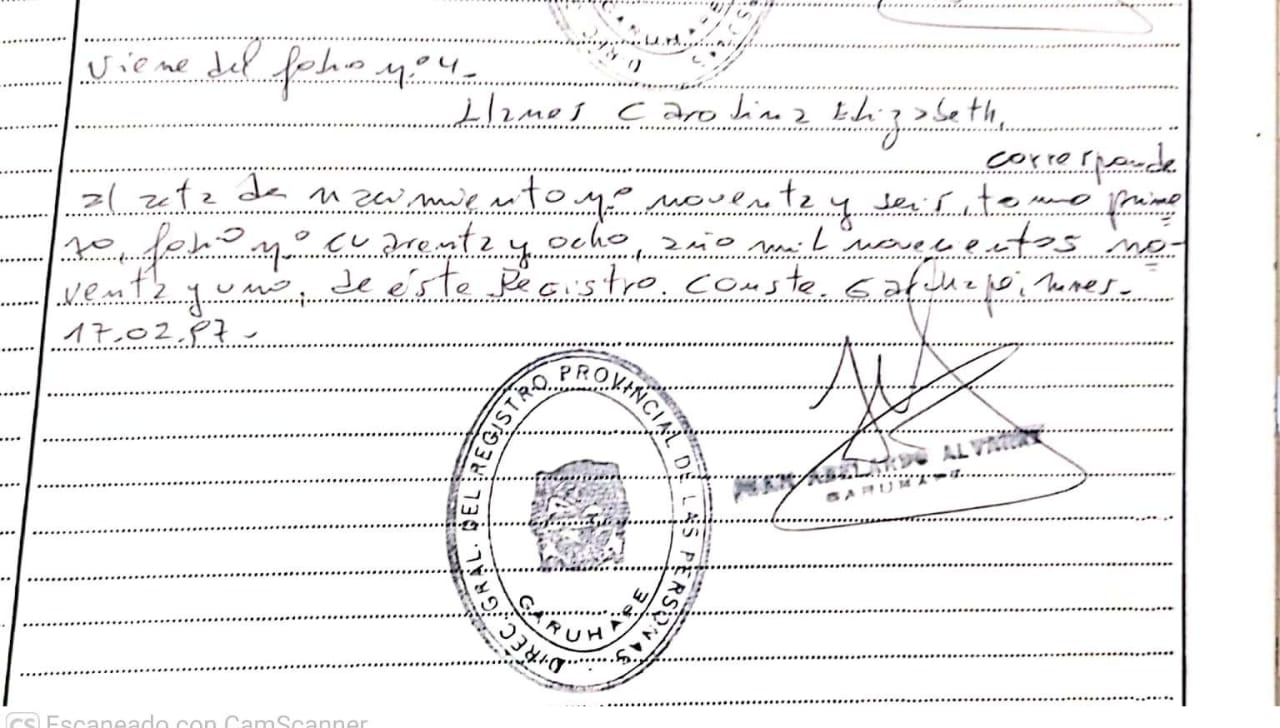 Viene del folio nº 4.
Llanes Carolina Elizabeth,
corresponde
al acta de nacimiento nº noventa y seis, tomo prime
ro, folio nº cuarenta y ocho, año mil novecientos no-
venta y uno, de éste Registro. Conste. Garuhapé, Mnes.
17.02.97.-
DIREC. GRAL. DEL REGISTRO PROVINCIAL DE LAS PERSONAS
GARUHAPE
ABELARDO ALVAREZ
GARUHAPE
CS Escaneado con CamScanner